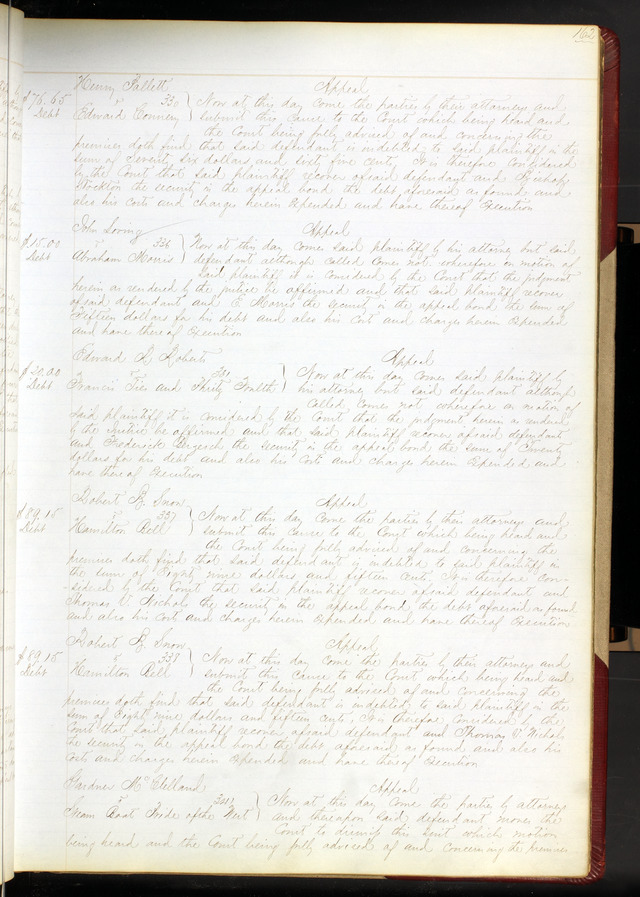 162
Henry Fallett Appeal
$76.65 Debt
v 330
Edward Connery } Now at this day come the parties by their attorneys and
submit this cause to the Court which being heard and
the Court being fully advised of and concerning the
premises doth find that said defendant is indebted to said plaintiff in the
sum of Seventy Six dollars and sixty five cents, It is therefore considered
by the Court that said plaintiff recover of said defendant and Bishop
Stockton the security in the appeal bond the debt aforesaid as found and
also his costs and charges herein expended and have thereof Execution
John Loring Appeal
$15.00 Debt
v 336
Abraham Morris } Now at this day comes said plaintiff by his attorney but said
defendant although called comes not wherefore on motion of
said plaintiff it is considered by the Court that the judgment
herein as rendered by the justice be affirmed and that said plaintiff recover
of said defendant and E Morris the security in the appeal bond the sum of
Fifteen dollars for his debt and also his Cost and charges herein Expended
and have thereof Execution
Edward L Roberts Appeal
$20.00 Debt
v
Francis and } Now at this day comes said plaintiff by
his attorney but said defendant although
called comes not wherefore on motion of
said plaintiff it is considered by the Court that the judgment herein as rendered
by the justice be affirmed and that said plaintiff recover of said defendant
and Frederick the security in the appeal bond the sum of Twenty
dollars for his debt and also his Costs and charges herein Expended and
have thereof Execution
Robert B. Snow Appeal
$89.15 Debt
v 337
Hamilton Bell } Now at this day come the parties by their attorneys and
submit this cause to the Court which being heard and
the Court being fully advised of and concerning the
premises doth find that said defendant is indebted to said plaintiff in
the sum of Eighty nine dollars and fifteen cents. It is therefore con-
-sidered by the Court that said plaintiff recover of said defendant and
Thomas V. Nichols the security in the appeal bond the debt aforesaid as found
and also his Cost and charges herein Expended and have thereof Execution
Robert B. Snow Appeal
$89.15 Debt
v 338
Hamilton Bell } Now at this day come the parties by their attorneys and
submit this cause to the Court which being heard and
the Court being fully advised of and concerning the
premises doth find that said defendant is indebted to said plaintiff in the
sum of Eighty nine dollars and fifteen cents, It is therefore considered by the
Court that said plaintiff recover of said defendant and Thomas V. Nichols
the security in the appeal bond the debt aforesaid as found and also his
costs and charges herein Expended and have thereof Execution
Gardner McClelland Appeal
v
Steam Boat Pride of the West } Now at this day come the parties by attorneys
and thereupon said defendant moves the
Court to dismiss this suit which motion
being heard and the Court being fully advised of and concerning the premises